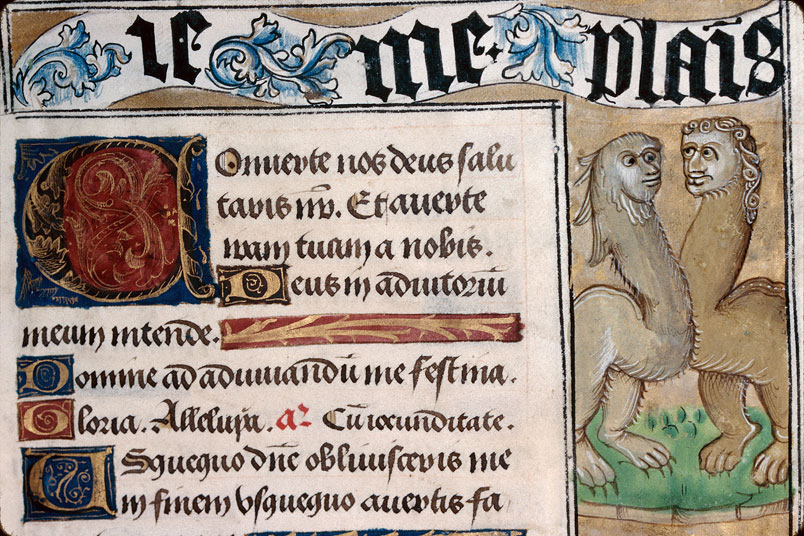 ie me plais
Converte nos deus salu
taris nr̄. Et averte
iram tuam a nobis.
Deus in adiutoriū
meum intende.
Domine ad adiuuandū me festina.
Gloria. Alleluya. aꝰ Cū iocunditate.
Vsquequo dn̄e obliuisceris me
in finem vsquequo avertis fa